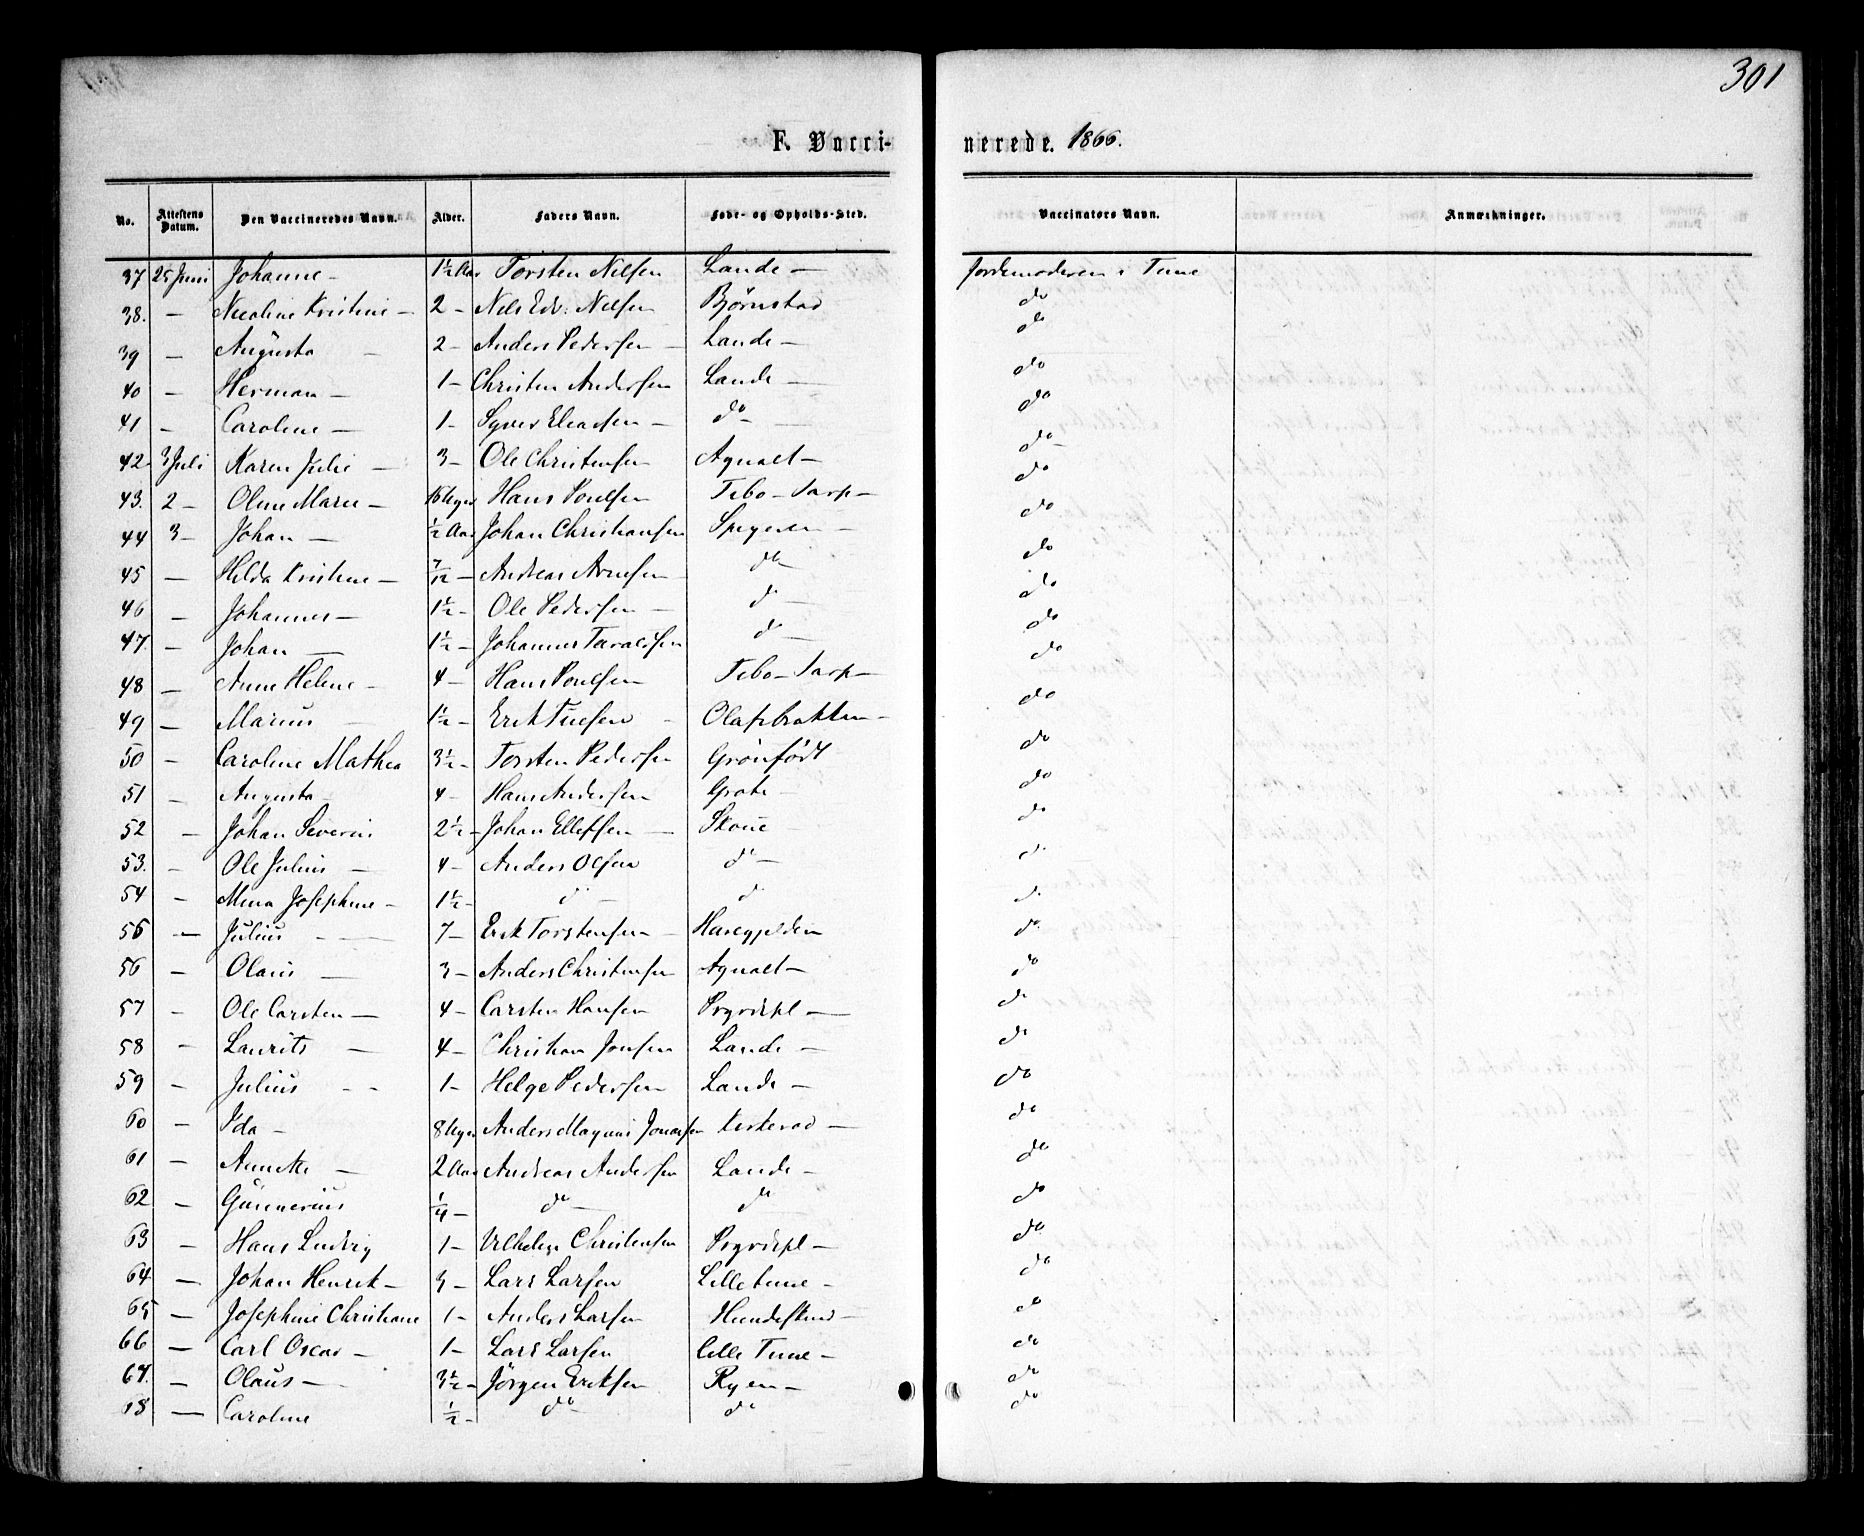 301
F. Vacci-nerede. 1866.
No. Attestens Datum. Den Vaccineredes Navn. Alder. Faders Navn. Føde- og Opholds-Sted. Vaccinators Navn. Anmærkninger.
37 25 Juni Johanne - 1½ Aar Torsten Nilsen Lande - Jordemoderen i Tune
38. - Nicoline Kristine - 2 - Nels Edv. Nilsen Bjørnstad do
39 - Augusta - 2 - Anders Pedersen - Lande - do
40 - Herman - 1 - Christen Andersen Lande - do
41 - Caroline - 1 - Syver Eliassen - do - do
42 3 Juli Karen Julie - 3 - Ole Christensen Agnalt - do
43. 2 - Oline Marie - 16 Uger Hans Poulsen Tebo - Sarp - do
44 3 - Johan - ½ Aar Johan Christiansen Spygeren - do
45 - Hilda Kristine - 7/12 - Andreas Arnesen - do do
46 - Johannes - 1½ - Ole Pedersen - do - do
47. - Johan - 1½ - Johannes Taraldsen do - do
48 - Anne Helene - 4 - Hans Poulsen Tebo - Sarp - do
49 - Marius - 1½ - Erik - Olafsbakken - do
50 - Caroline Mathea 3½ - Torsten Pedersen Grønfødt do
51 - Augusta - 4 - Hans Andersen Grote - do
52 - Johan Severin 2½ - Johan Ellefsen - Skoue - do
53. - Ole Julius - 4 - Anders Olsen do - do
54 - Mina Josephine - 1½ - do - do do
56 - Julius - 7 - Erik Torstensen - Haregjelden do
56 - Olaus - 3 - Anders Christensen Agnalt - do
57 - Ole Carsten - 4 - Carsten Hansen Prgrdspl - do
58 - Laurits - 4 - Christian Jensen Lande - do
59 - Julius - - 1 - Helge Pedersen Lande - do
60 - Ida - 8 Uger Anders Magnus Jonassen Kirkerød - do
61 - Annette - 2 Aar Andreas Andersen Lande - do
62 - Gunnerius ¼ - do - do do
63 - Hans Ludvig 1 - Christensen Prgrdspl - do
64 - Johan Henrik - 3 - Lars Larsen Lilletune - do
65 - Josephine Christiane 1 - Anders Larsen Hundeskind - do
66 - Carl Oscar - 1 - Lars Larsen Lille Tune - do
67. - Olaus - 3½ - Jörgen Eriksen Ryen - do
68 - Caroline ½ - do do do